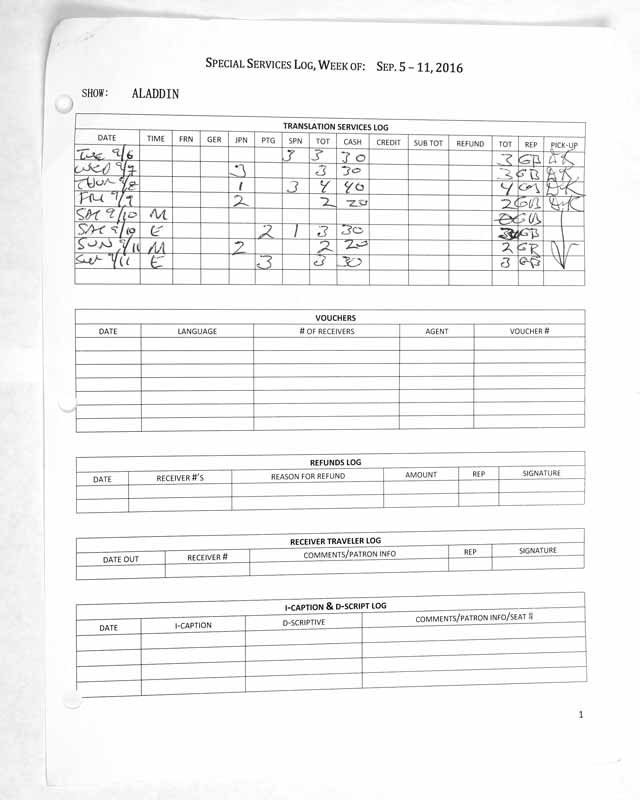 SPECIAL SERVICES LOG, WEEK OF: SEP. 5 – 11, 2016
SHOW: ALADDIN
TRANSLATION SERVICES LOG
DATE TIME FRN GER JPN PTG SPN TOT CASH CREDIT SUB TOT REFUND TOT REP PICK-UP
TUE 9/6 3 3 30 3 GB DK
WED 9/7 3 3 30 3 GB DK
THUR 9/8 1 3 4 40 4 GB DK
FRI 9/9 2 2 20 2 GB DK
SAT 9/10 M 0 GB
SAT 9/10 E 2 1 3 30 3 GB
SUN 9/11 M 2 2 20 2 GB
SUN 9/11 E 3 3 30 3 GB
VOUCHERS
DATE LANGUAGE # OF RECEIVERS AGENT VOUCHER #
REFUNDS LOG
DATE RECEIVER #'S REASON FOR REFUND AMOUNT REP SIGNATURE
RECEIVER TRAVELER LOG
DATE OUT RECEIVER # COMMENTS/PATRON INFO REP SIGNATURE
I-CAPTION & D-SCRIPT LOG
DATE I-CAPTION D-SCRIPTIVE COMMENTS/PATRON INFO/SEAT #
1